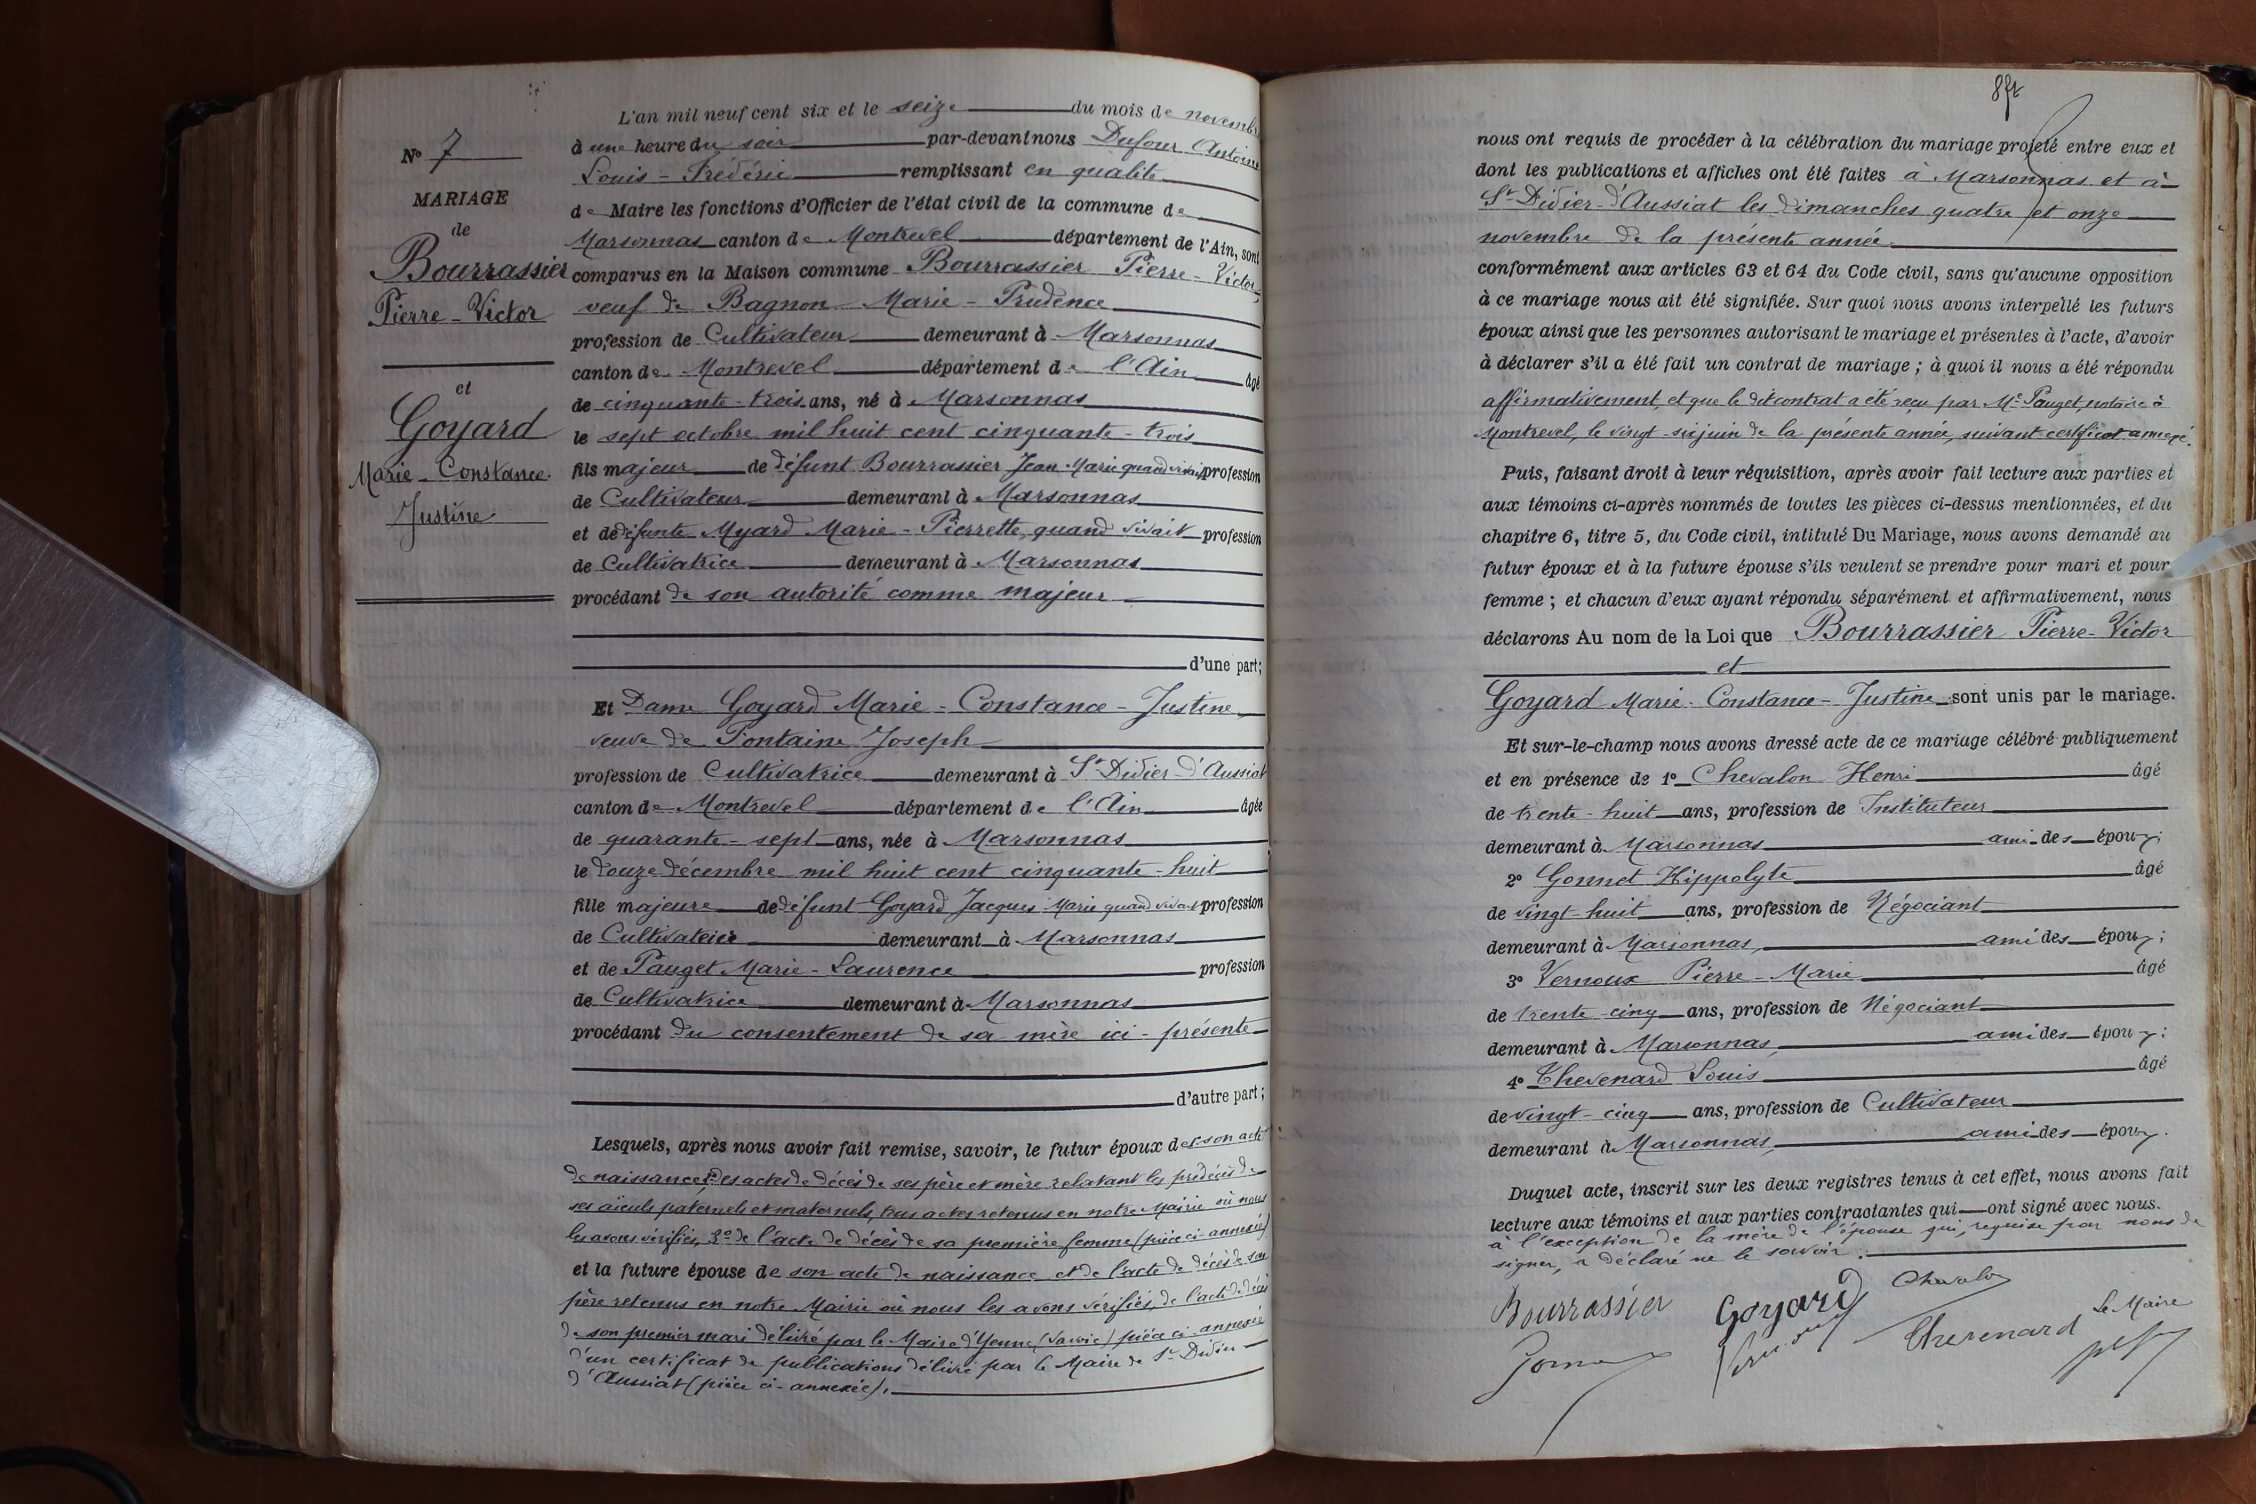 L'an mil neuf cent six et le seize du mois de novembre
à une heure du soir par-devant nous Dufour Antoine
Louis-Frédéric remplissant en qualité
de Maire les fonctions d'Officier de l'état civil de la commune de
Marsonnas canton de Montrevel département de l'Ain, sont
comparus en la Maison commune Bourrassier Pierre-Victor,
veuf de Bagnon Marie-Prudence
profession de Cultivateur demeurant à Marsonnas
canton de Montrevel département de l'Ain âgé
de cinquante-trois ans, né à Marsonnas
le sept octobre mil huit cent cinquante-trois
fils majeur de défunt Bourrassier Jean-Marie quand vivait profession
de Cultivateur demeurant à Marsonnas
et de défunte Myard Marie-Pierrette, quand vivait profession
de Cultivatrice demeurant à Marsonnas
procédant de son autorité comme majeur
d'une part;
Et Dame Goyard Marie-Constance-Justine
veuve de Fontaine Joseph
profession de Cultivatrice demeurant à St Didier-d'Aussiat
canton de Montrevel département de l'Ain âgée
de quarante-sept ans, née à Marsonnas
le douze décembre mil huit cent cinquante-huit
fille majeure de défunt Goyard Jacques-Marie quand vivait profession
de Cultivateur demeurant à Marsonnas
et de Pauget Marie-Laurence profession
de Cultivatrice demeurant à Marsonnas
procédant du consentement de sa mère ici-présente
d'autre part;
Lesquels, après nous avoir fait remise, savoir, le futur époux de 1° son acte
de naissance, 2° des actes de décès de ses père et mère relatant les prédécès de
ses aïeuls paternels et maternels, tous actes retenus en notre Mairie où nous
les avons vérifiés, 3° de l'acte de décès de sa première femme (pièce ci-annexée)
et la future épouse de son acte de naissance et de l'acte de décès de son
père retenus en notre Mairie où nous les avons vérifiés, de l'acte de décès
de son premier mari délivré par le Maire d'Yenne (Savoie) pièce ci-annexée
d'un certificat de publications délivré par le Maire de St Didier
d'Aussiat (pièce ci-annexée).
N° 7
MARIAGE
de
Bourrassier
Pierre-Victor
et
Goyard
Marie-Constance-
Justine
nous ont requis de procéder à la célébration du mariage projeté entre eux et
dont les publications et affiches ont été faites à Marsonnas et à
St Didier-d'Aussiat les dimanches quatre et onze
novembre de la présente année
conformément aux articles 63 et 64 du Code civil, sans qu'aucune opposition
à ce mariage nous ait été signifiée. Sur quoi nous avons interpellé les futurs
époux ainsi que les personnes autorisant le mariage et présentes à l'acte, d'avoir
à déclarer s'il a été fait un contrat de mariage; à quoi il nous a été répondu
affirmativement, et que le dit contrat a été reçu par Me Pauget, notaire à
Montrevel, le vingt-six juin de la présente année, suivant certificat annexé.
Puis, faisant droit à leur réquisition, après avoir fait lecture aux parties et
aux témoins ci-après nommés de toutes les pièces ci-dessus mentionnées, et du
chapitre 6, titre 5, du Code civil, intitulé Du Mariage, nous avons demandé au
futur époux et à la future épouse s'ils veulent se prendre pour mari et pour
femme; et chacun d'eux ayant répondu séparément et affirmativement, nous
déclarons Au nom de la Loi que Bourrassier Pierre-Victor
et
Goyard Marie-Constance-Justine sont unis par le mariage.
Et sur-le-champ nous avons dressé acte de ce mariage célébré publiquement
et en présence de 1° Chevalon Henri âgé
de trente-huit ans, profession de Instituteur
demeurant à Marsonnas ami des époux;
2° Gonnet Hippolyte âgé
de vingt-huit ans, profession de Négociant
demeurant à Marsonnas, ami des époux;
3° Vernoux Pierre-Marie âgé
de trente-cinq ans, profession de Négociant
demeurant à Marsonnas, ami des époux;
4° Thevenard Louis âgé
de vingt-cinq ans, profession de Cultivateur
demeurant à Marsonnas, ami des époux.
Duquel acte, inscrit sur les deux registres tenus à cet effet, nous avons fait
lecture aux témoins et aux parties contractantes qui ont signé avec nous.
à l'exception de la mère de l'épouse qui, requise par nous de
signer, a déclaré ne le savoir.
Bourrassier Goyard Chevalon
Thevenard Le Maire